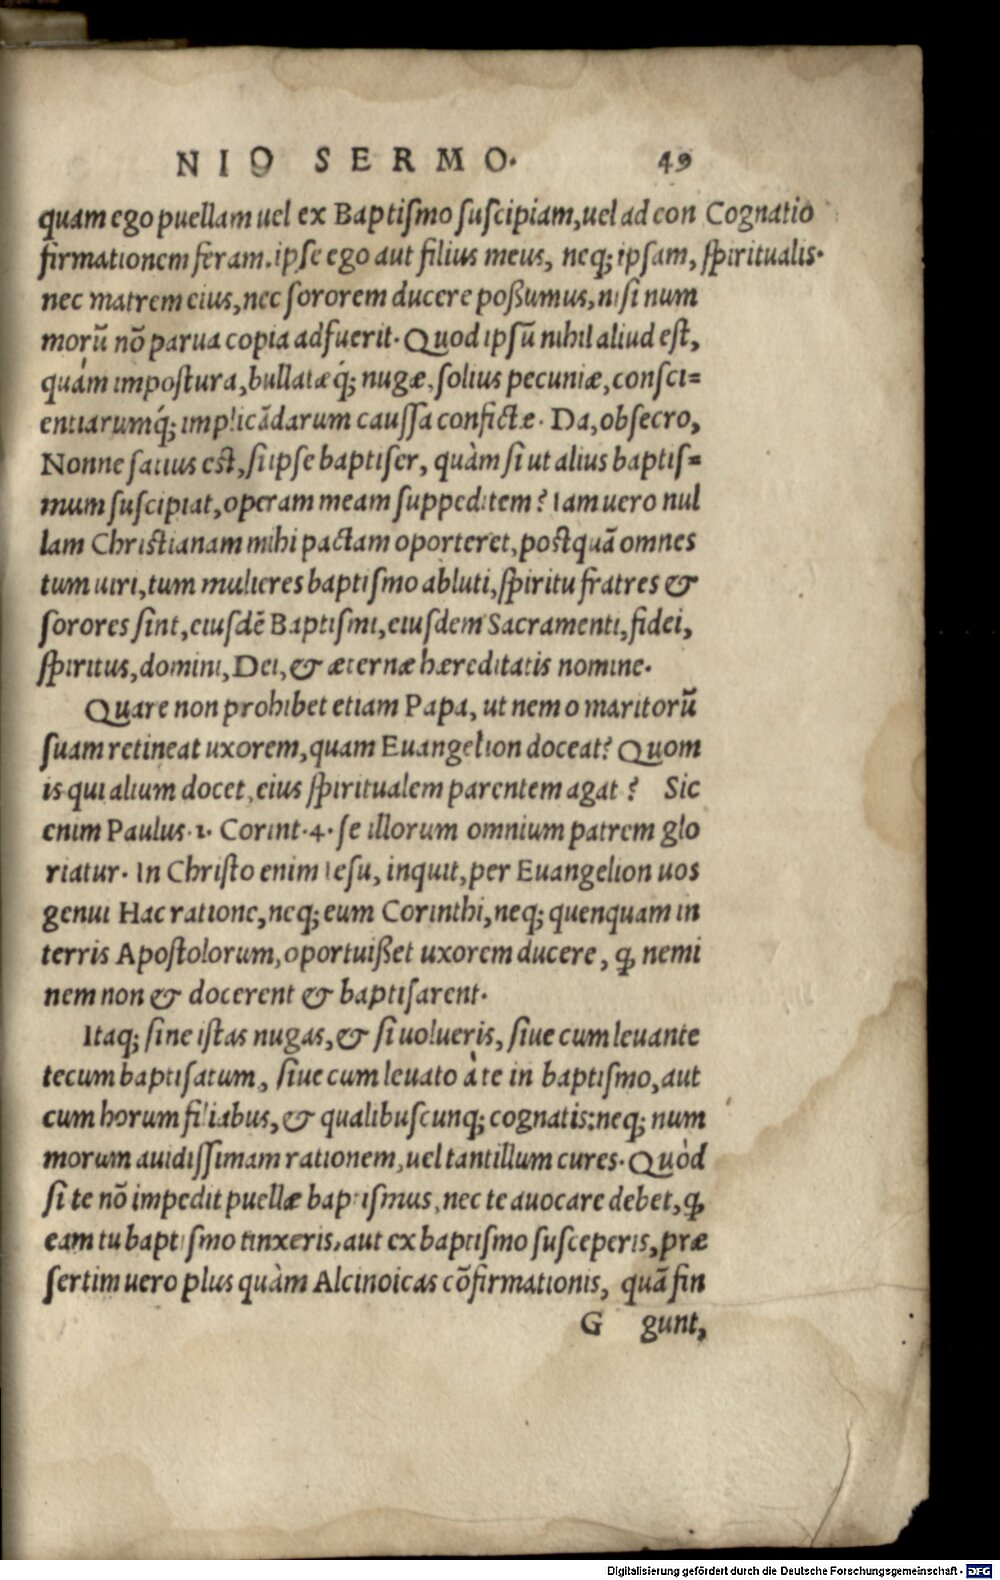 NIO SERMO. 49
quam ego puellam uel ex Baptiſmo ſuſcipiam, uel ad con Cognatio
firmationem feram. ipſe ego aut filius meus, neq; ipſam, ſpiritualis.
nec matrem eius, nec ſororem ducere poßumus, niſi num
morũ nõ parua copia adfuerit. Quod ipſũ nihil aliud eſt,
quàm impoſtura, bullatæq́; nugæ, ſolius pecuniæ, conſci-
entiarumq́; implicãdarum cauſſa confictæ. Da, obſecro,
Nonne ſatius eſt, ſi ipſe baptiſer, quàm ſi ut alius baptiſ-
mum ſuſcipiat, operam meam ſuppeditem? Iam uero nul
lam Chriſtianam mihi pactam oporteret, poſtquã omnes
tum uiri, tum mulieres baptiſmo abluti, ſpiritu fratres &
ſorores ſint, eiuſdẽ Baptiſmi, eiuſdem Sacramenti, fidei,
ſpiritus, domini, Dei, & æternæ hæreditatis nomine.
Quare non prohibet etiam Papa, ut nemo maritorũ
ſuam retineat uxorem, quam Euangelion doceat? Quom
is qui alium docet, eius ſpiritualem parentem agat? Sic
enim Paulus .1. Corint .4. ſe illorum omnium patrem glo
riatur. In Chriſto enim Ieſu, inquit, per Euangelion uos
genui Hac ratione, neq; eum Corinthi, neq; quenquam in
terris Apoſtolorum, oportuißet uxorem ducere, ꝙ nemi
nem non & docerent & baptiſarent.
Itaq; ſine iſtas nugas, & ſi uolueris, ſiue cum leuante
tecum baptiſatum, ſiue cum leuato à te in baptiſmo, aut
cum horum filiabus, & qualibuſcunq; cognatis: neq; num
morum auidiſſimam rationem, uel tantillum cures. Quòd
ſi te nõ impedit puellæ baptiſmus, nec te auocare debet, ꝙ
eam tu baptiſmo tinxeris, aut ex baptiſmo ſuſceperis, præ
ſertim uero plus quàm Alcinoicas cõfirmationis, quã fin
G gunt,
Digitalisierung gefördert durch die Deutsche Forschungsgemeinschaft - DFG